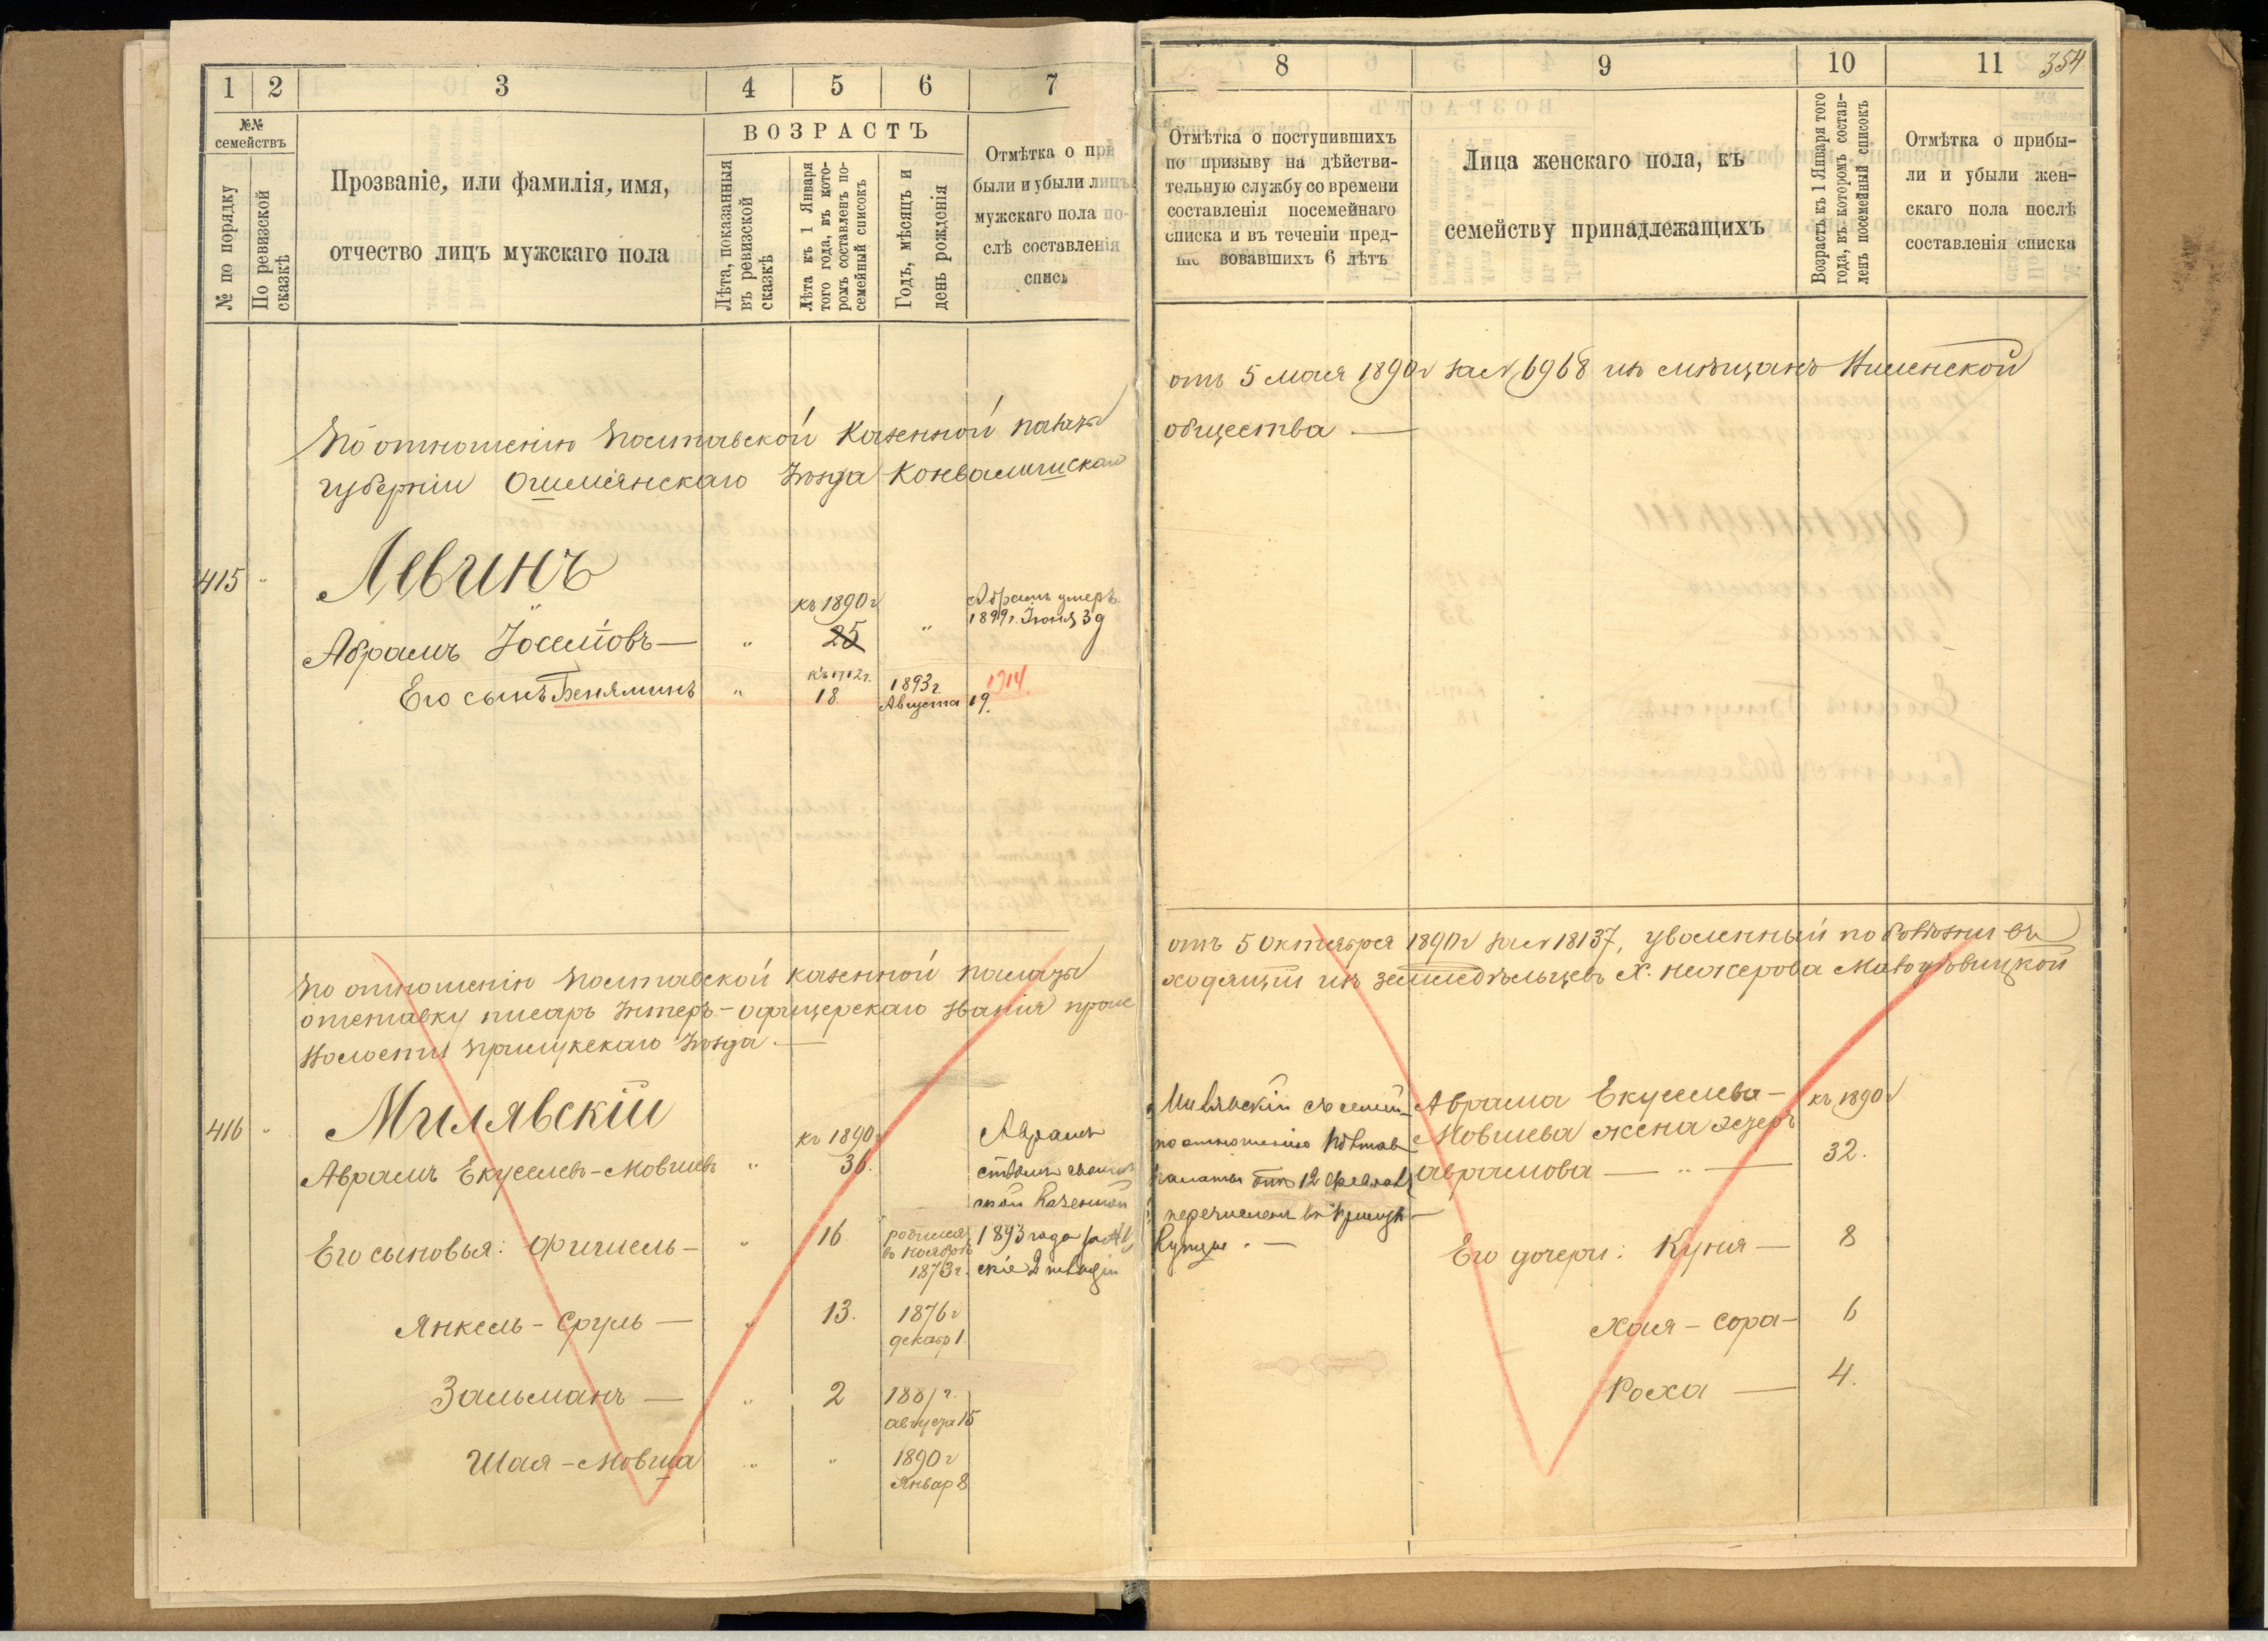 1 2 3 4 5 6 7
№№ семействъ
№ по порядку
По ревизской сказкѣ
Прозваніе, или фамилія, имя,
отчество лицъ мужскаго пола
ВОЗРАСТЪ
Лѣта, показанныя въ ревизской сказкѣ
Лѣта къ 1 Января того года, въ которомъ составленъ посемейный списокъ
Годъ, мѣсяцъ и день рожденія
Отмѣтка о при
были и убыли лицъ
мужскаго пола по-
слѣ составленія
списк
По отношенію Полтавской Казенной палаты
губерніи Ошмянскаго Уѣзда
415 Левинъ
Абрамъ Іосе въ — " къ 1890 г 25 " Абрамъ умеръ
1899 г. Іюня 39
Его сынъ Беняминъ " къ 1912 г. 18 1893 г. Августа 19. 1914.
По отношенію Полтавской казенной палаты
отставку писарь Унтеръ-офицерскаго званія проис
Волости Прилукскаго Уѣзда. —
416 " Милявскій
Аврамъ Екуселевъ-Мовшевъ " къ 1890 г 36. Аврамъ
Его сыновья: Фишель — " 16 родился въ Ноябрѣ 1873 г. 1893 года
Янкель-Сруль — " 13. 1876 г декабр 1.
Зальманъ — " 2 1887 г. августа 15
Шая-Мовша " " 1890 г Январ 8
8 9 10 11 354
Отмѣтка о поступившихъ
по призыву на дѣйстви-
тельную службу со времени
составленія посемейнаго
списка и въ теченіи пред-
ше вовавшихъ 6 лѣтъ
Лица женскаго пола, къ
семейству принадлежащихъ
Возрастъ къ 1 Января того года, въ которомъ составленъ посемейный списокъ
Отмѣтка о прибы-
ли и убыли жен-
скаго пола послѣ
составленія списка
отъ 5 мая 1890 г за № 6968 изъ мѣщанъ Виленской
общества —
отъ 5 Октября 1890 г за № 18137, уволенный по болѣзни въ
ходящій изъ земледѣльцевъ
Милявскій съ семей- Аврама Екуселева — къ 1890 г
по отношенію Полтав Мовшева жена
палаты отъ 12 Аврамова — " — 32.
перечисленъ въ Прилук —
Купцы. —
Его дочери: Куня — 8
Хая-Сора — 6
Роха — 4.